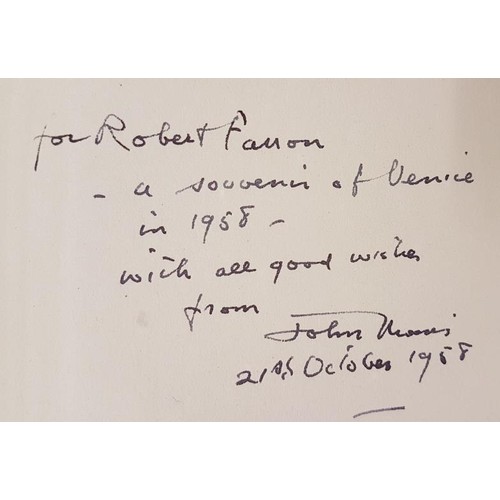 for Robert Farron
- a souvenir of Venice
in 1958 -
with all good wishes
from
John Morris
21st October 1958